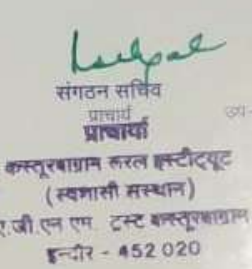 संगठन सचिव
प्राचार्य
प्राचार्या
कस्तूरबाग्राम रूरल इन्स्टीट्यूट
(स्वशासी संस्थान)
ए.जी.एन.एम. ट्रस्ट कस्तूरबाग्राम
इन्दौर - 452 020